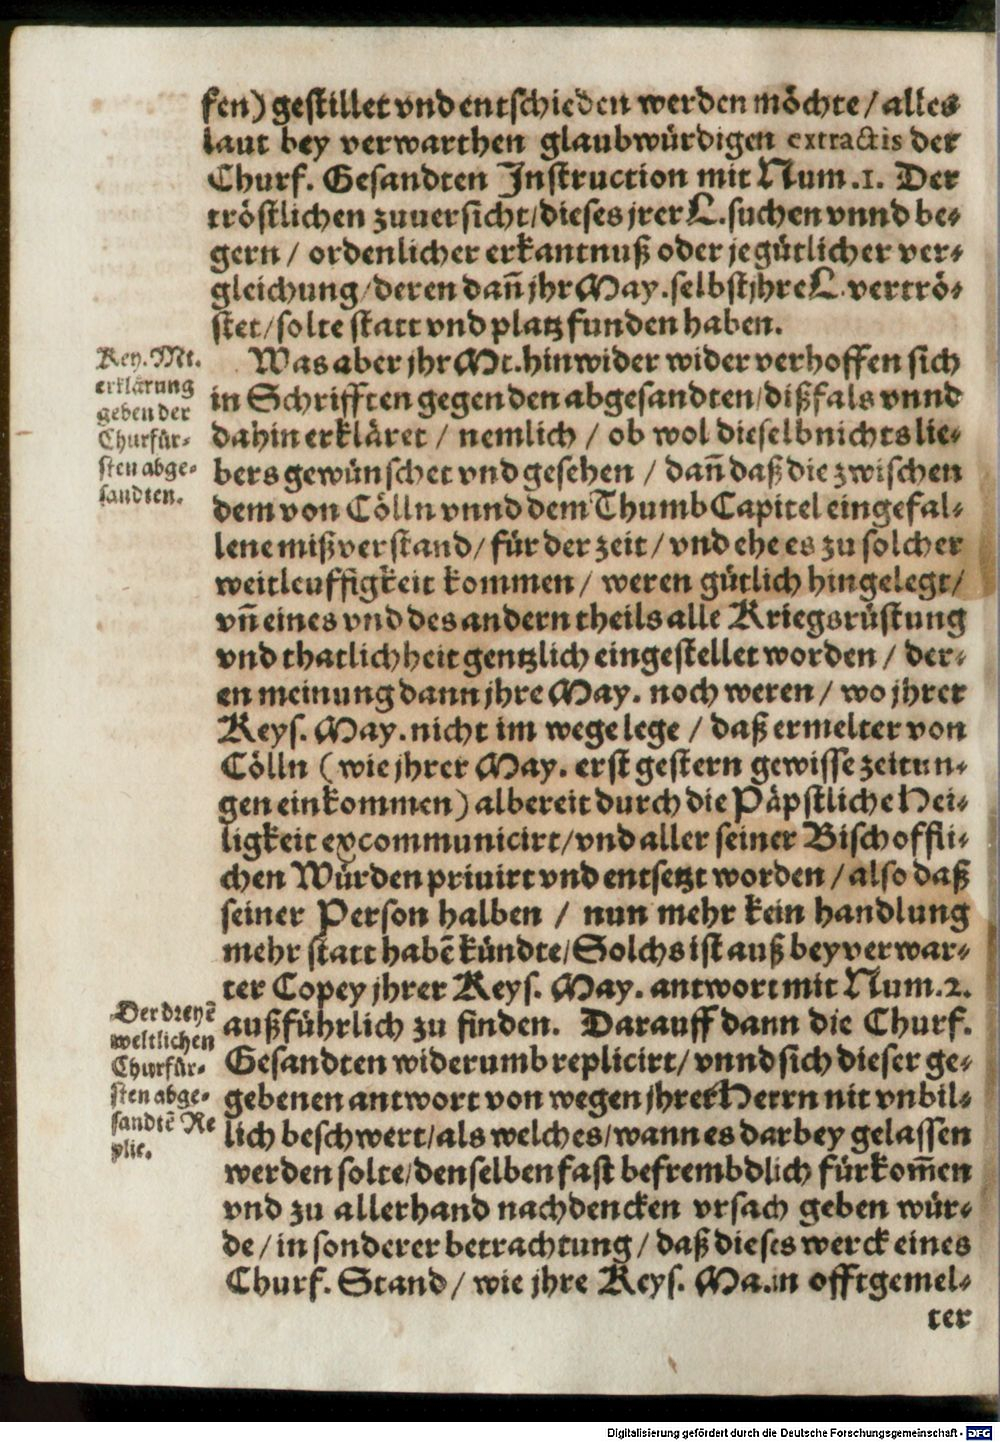 fen) gestillet vnd entschieden werden möchte / alles
laut bey verwarthen glaubwürdigen extractis der
Churf. Gesandten Instruction mit Num. 1. Der
tröstlichen zuuersicht / dieses jrer L. suchen vnnd be-
gern / ordenlicher erkantnuß oder je gütlicher ver-
gleichung / deren dañ jhr May. selbst jhre L. vertrö-
stet / solte statt vnd platz funden haben.
Key. Mt.
erklärung
geben der
Churfür-
sten abge-
sandten.
Was aber jhr Mt. hinwider wider verhoffen sich
in Schrifften gegen den abgesandten / dißfals vnnd
dahin erkläret / nemlich / ob wol dieselb nichts lie-
bers gewünschet vnd gesehen / dañ daß die zwischen
dem von Cölln vnnd dem Thumb Capitel eingefal-
lene mißverstand / für der zeit / vnd ehe es zu solcher
weitleuffigkeit kommen / weren gütlich hingelegt /
vñ eines vnd des andern theils alle Kriegsrüstung
vnd thatlichheit gentzlich eingestellet worden / der-
en meinung dann jhre May. noch weren / wo jhrer
Keys. May. nicht im wege lege / daß ermelter von
Cölln ( wie jhrer May. erst gestern gewisse zeitun-
gen einkommen ) albereit durch die Päpstliche Hei-
ligkeit excommunicirt / vnd aller seiner Bischoffli-
chen Würden priuirt vnd entsetzt worden / also daß
seiner Person halben / nun mehr kein handlung
mehr statt habẽ kündte / Solchs ist auß bey verwar-
ter Copey jhrer Keys. May. antwort mit Num. 2.
außführlich zu finden. Darauff dann die Churf.
Der dreyẽ
weltlichen
Churfür-
sten abge-
sandtẽ Re
plic.
Gesandten widerumb replicirt / vnnd sich dieser ge-
gebenen antwort von wegen jhrer Herrn nit vnbil-
lich beschwert / als welches / wann es darbey gelassen
werden solte / denselben fast befrembdlich fürkom̃en
vnd zu allerhand nachdencken vrsach geben wür-
de / in sonderer betrachtung / daß dieses werck eines
Churf. Stand / wie jhre Keys. Ma. in offtgemel-
ter
Digitalisierung gefördert durch die Deutsche Forschungsgemeinschaft - DFG